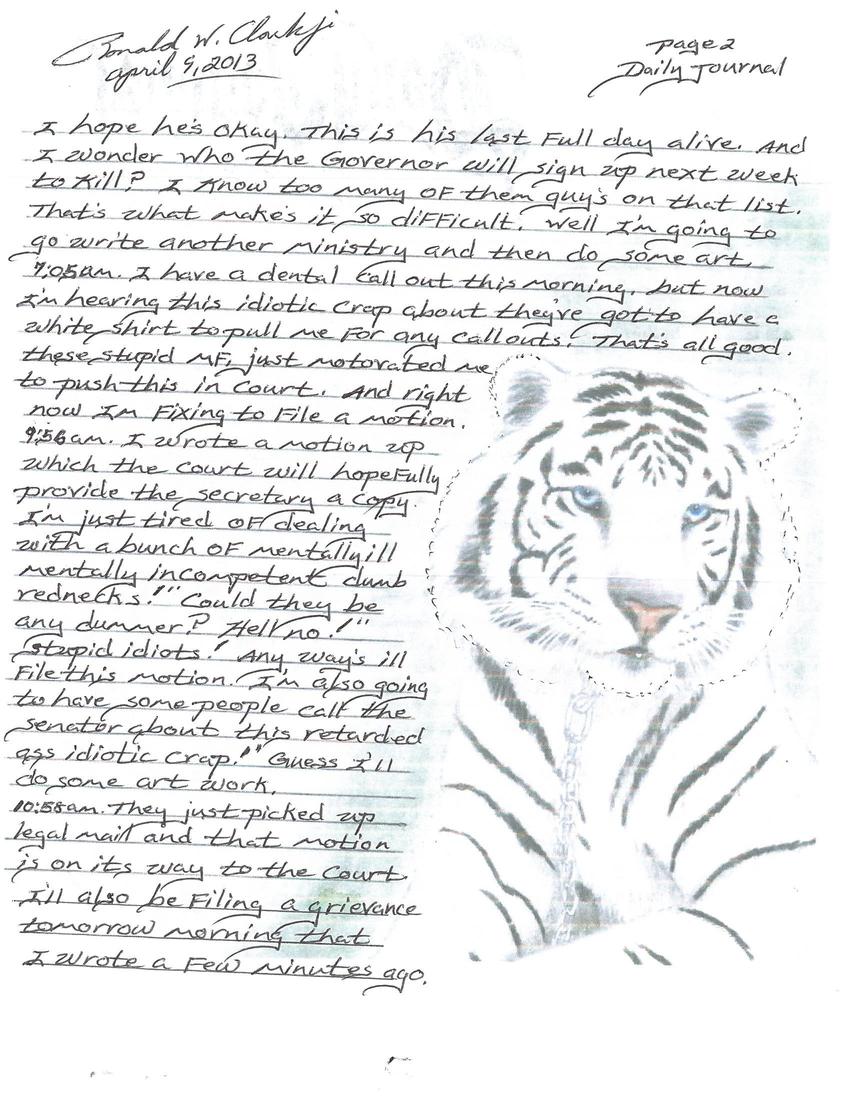 Ronald W. Clark Jr
April 9, 2013
page 2
Daily Journal
I hope he's okay. This is his last Full day alive. And
I wonder who the Governor will sign up next week
to Kill? I Know too many OF them guy's on that list.
That's what make's it so diFFicult. Well I'm going to
go write another ministry and then do some art.
7:05am. I have a dental Call out this morning, but now
I'm hearing this idiotic crap about they've got to have a
white shirt to pull me For any callouts. That's all good.
these stupid MF, just motovated me
to push this in court. And right
now Im Fixing to File a motion.
9:56am. I wrote a motion up
which the court will hopeFully
provide the secretary a copy.
I'm just tired OF dealing
with a bunch OF mentally ill
mentally incompetent dumb
rednecks!" Could they be
any dummer? Hell no!"
Stupid idiots! Any way's ill
File this motion. I'm also going
to have some people call the
senator about this retarded
ass idiotic crap!" Guess I'll
do some art work.
10:58am. They just picked up
legal mail and that motion
is on its way to the Court
I'll also be Filing a grievance
tomorrow morning that
I wrote a Few minutes ago.